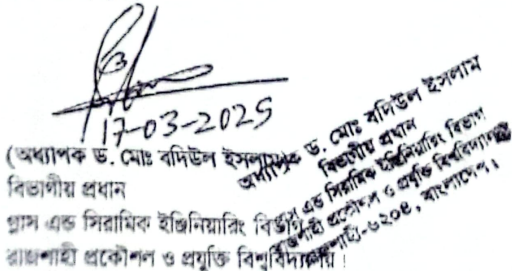 17-03-2025
(অধ্যাপক ড. মোঃ বদিউল ইসলাম)
বিভাগীয় প্রধান
গ্লাস এন্ড সিরামিক ইঞ্জিনিয়ারিং বিভাগ
রাজশাহী প্রকৌশল ও প্রযুক্তি বিশ্ববিদ্যালয়।
অধ্যাপক ড. মোঃ বদিউল ইসলাম
বিভাগীয় প্রধান
গ্লাস এন্ড সিরামিক ইঞ্জিনিয়ারিং বিভাগ
রাজশাহী প্রকৌশল ও প্রযুক্তি বিশ্ববিদ্যালয়
রাজশাহী-৬২০৪, বাংলাদেশ।